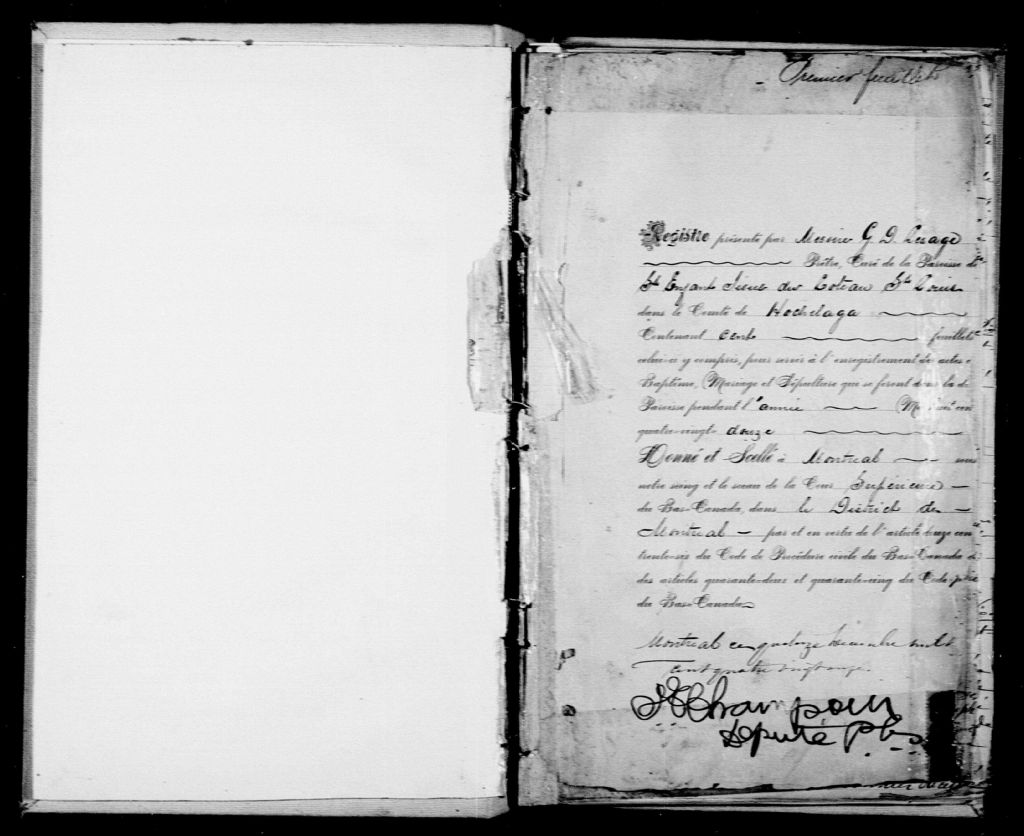 Premier feuillet
Registre présenté par Messire G. D. Lesage
Prêtre, Curé de la Paroisse de
St Enfant Jésus du Coteau St Louis
dans le Comté de Hochelaga
Contenant cent feuillets
celui-ci y compris, pour servir à l'enregistrement de actes
Baptême, Mariage et Sépulture que se feront dans la
Paroisse pendant l'année
quatre-vingt-douze
Donné et Scellé à Montreal sous
notre seing et le sceau de la Cour Supérieure
du Bas-Canada, dans le District de
Montreal par et en vertu de l'article
trente-six du Code de Procédure civile du Bas-Canada
des articles quarante-deux et quarante-cinq du Code
du Bas-Canada
Montreal ce quatorze Décembre
cent quatre vingt onze.
Député P